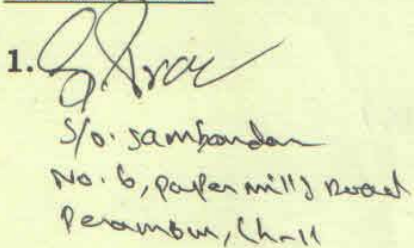 1.
S/o. Sambandan
No. 6, paper mills Road
Perambur, Ch-11